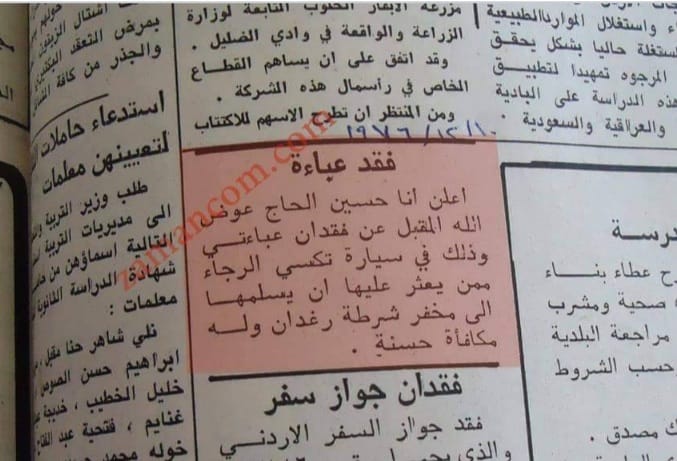 مزرعة الابقار الحلوب التابعة لوزارة
الزراعة والواقعة في وادي الضليل .
وقد اتفق على ان يساهم القطاع
الخاص في رأسمال هذه الشركة .
ومن المنتظر ان تطرح الاسهم للاكتتاب
١٩٧٦/١٢/١٠
فقد عباءة
اعلن انا حسين الحاج عوض
الله المقبل عن فقدان عباءتي
وذلك في سيارة تكسي الرجاء
ممن يعثر عليها ان يسلمها
الى مخفر شرطة رغدان وله
مكافأة حسنة .
فقدان جواز سفر
فقد جواز السفر الاردني
واستغلال الموارد الطبيعية
مستغلة حاليا بشكل يحقق
المرجوه تمهيدا لتطبيق
هذه الدراسة على البادية
والعراقية والسعودية .
طرح عطاء بناء
صحية ومشرب
مراجعة البلدية
حسب الشروط
مصدق .
اشتال الزيتون
بمرض التعقد البكتيري
والجذر من كافة
استدعاء حاملات
لتعيينهن معلمات
طلب وزير التربية
الى مديريات التربية
التالية اسماؤهن من
شهادة الدراسة الثانوية
معلمات :
نلي شاهر حنا مقبل ،
ابراهيم حسن
خليل الخطيب ، خديجة
غنايم ، فتحية عبد الفتاح
خوله محمد
zamancom.com